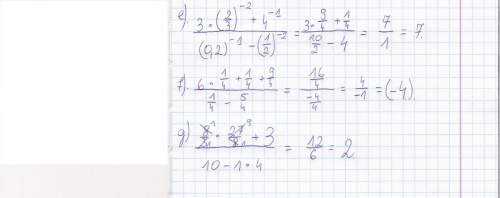 е). (3·(2/3)⁻² + 4⁻¹)/((0,2)⁻¹ − (1/2)⁻²) = (3·9/4 + 1/4)/(10/2 − 4) = 7/1 = 7.
f). (6·1/4 + 1/4 + 9/4)/(1/4 − 5/4) = (16/4)/(−4/4) = 4/−1 = (−4).
g) (8/2·27/8 + 3)/(10 − 1·4) = 12/6 = 2